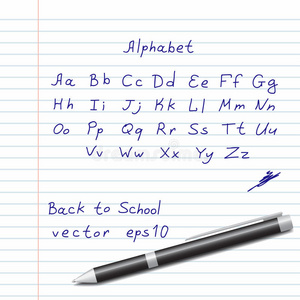 Alphabet
Aa Bb Cc Dd Ee Ff Gg
Hh Ii Jj Kk Ll Mm Nn
Oo Pp Qq Rr Ss Tt Uu
Vv Ww Xx Yy Zz
Back to School
vector eps10